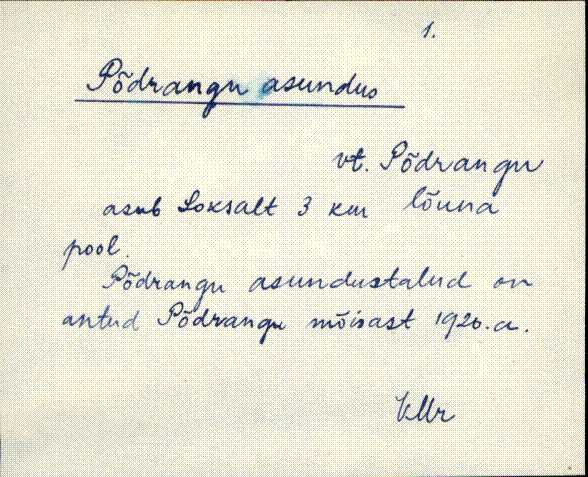 1.
Põdrangu asundus
vt. Põdrangu
asub Loksalt 3 km lõuna
pool.
Põdrangu asundustalud on
antud Põdrangu mõisast 1920.a.